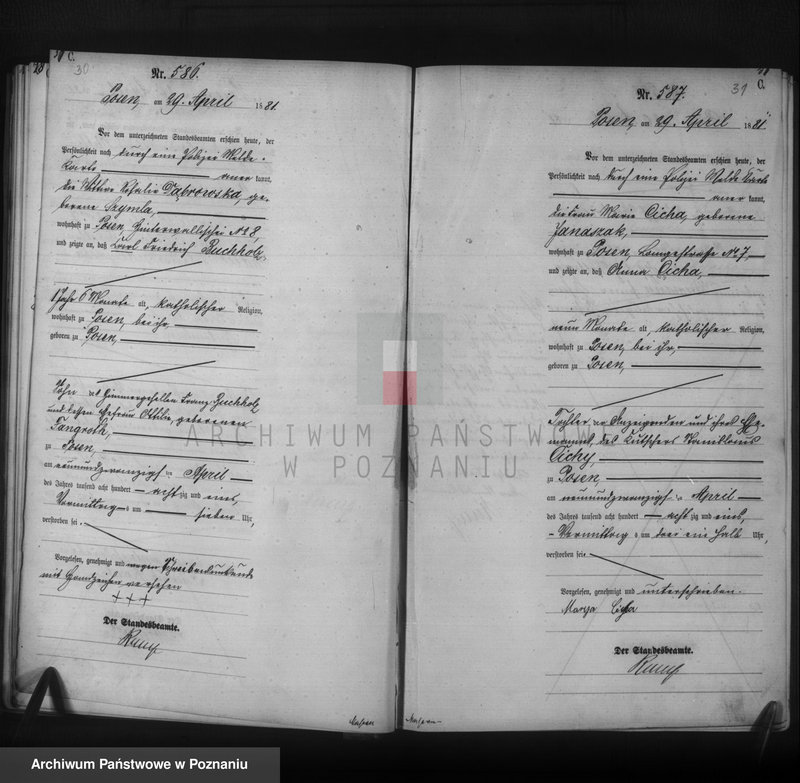 C.
30
Nr. 586.
Posen, am 29. April 1881.
Vor dem unterzeichneten Standesbeamten erschien heute, der
Persönlichkeit nach durch eine Polizei Melde-
Karte anerkannt,
die Wittwe Rosalie Dąbrowska, ge-
borene Szymla,
wohnhaft zu Posen, Hinterwallischei No 8,
und zeigte an, daß Karl Friedrich Buchholz,
1 Jahr 6 Monate alt, katholischer Religion,
wohnhaft zu Posen, bei ihr,
geboren zu Posen,
Sohn des Zimmergesellen Franz Buchholz
und dessen Ehefrau Ottilie, geborenen
Tangroth,
zu Posen,
am neunundzwanzigsten April
des Jahres tausend acht hundert achtzig und eins,
Vormittags um sieben Uhr,
verstorben sei.
Vorgelesen, genehmigt und wegen Schreibensunkunde
mit Handzeichen versehen
+++
Der Standesbeamte.
C.
31
Nr. 587.
Posen, am 29. April 1881.
Vor dem unterzeichneten Standesbeamten erschien heute, der
Persönlichkeit nach durch eine Polizei Melde Karte
anerkannt,
die Frau Marie Cicha, geborene
Janaszak,
wohnhaft zu Posen, Langestraße No 7,
und zeigte an, daß Anna Cicha,
neun Monate alt, katholischer Religion,
wohnhaft zu Posen, bei ihr,
geboren zu Posen,
Tochter der Anzeigenden und ihres Ehe-
manns, des Kutschers Stanislaus
Cichy,
zu Posen,
am neunundzwanzigsten April
des Jahres tausend acht hundert achtzig und eins,
Vormittags um drei ein halb Uhr,
verstorben sei.
Vorgelesen, genehmigt und unterschrieben.
Marya Cicha
Der Standesbeamte.
ARCHIWUM PAŃSTW
W POZNANIU
Archiwum Państwowe w Poznaniu